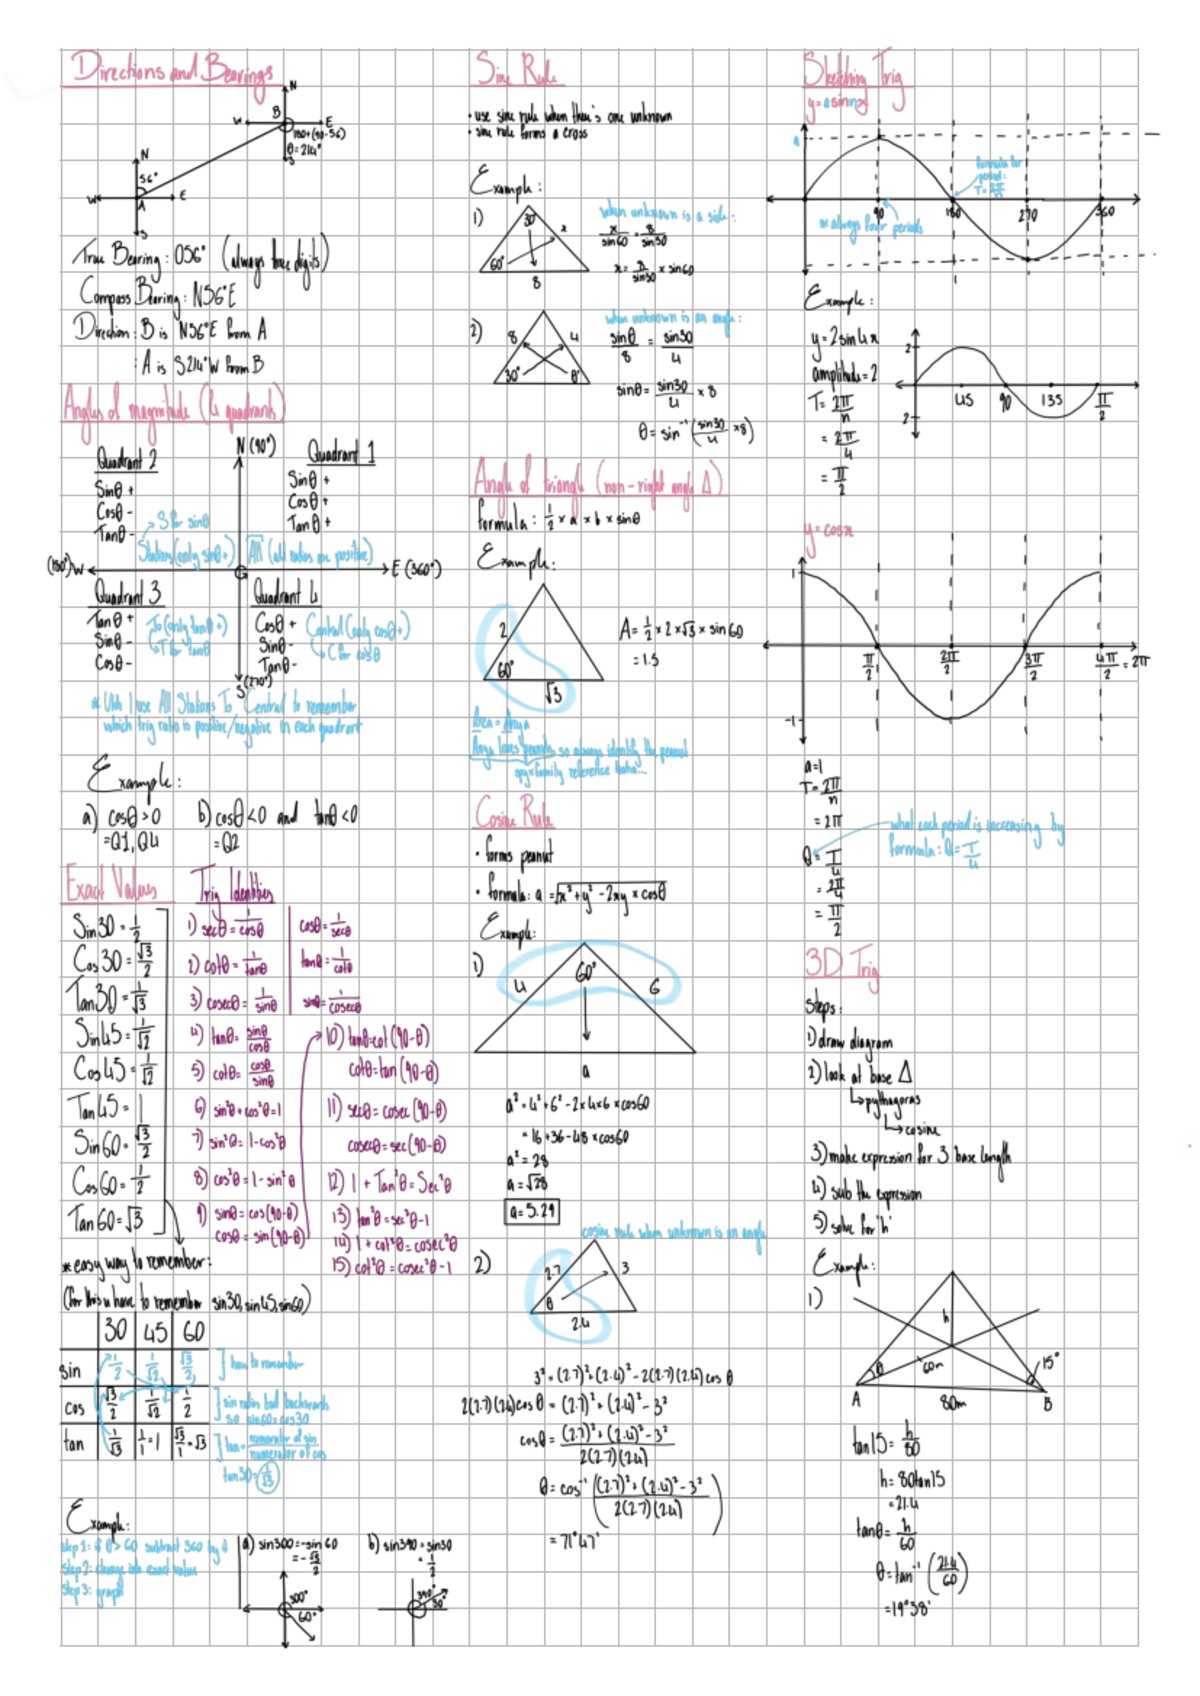 Directions and Bearings
N
B
W
E
180+(90-56)
θ=214°
S
N
56°
W
E
A
S
True Bearing: 056° (always three digits)
Compass Bearing: N56°E
Direction: B is N56°E from A
: A is S214°W from B
Angles of magnitude (4 quadrants)
N (90°)
Quadrant 2
Sinθ +
Cosθ -
Tanθ -
→ S for sinθ
Stations (only sinθ +)
Quadrant 1
Sinθ +
Cosθ +
Tanθ +
All (all ratios are positive)
(180°) W
E (360°)
Quadrant 3
Tanθ +
Sinθ -
Cosθ -
To (only tanθ +)
→ T for tanθ
Quadrant 4
Cosθ +
Sinθ -
Tanθ -
Central (only cosθ +)
→ C for cosθ
S (270°)
* Uhh I use All Stations To Central to remember
which trig ratio is positive/negative in each quadrant
Example:
a) cosθ > 0
= Q1, Q4
b) cosθ < 0 and tanθ < 0
= Q2
Exact Values
Sin30 = 1/2
Cos30 = √3/2
Tan30 = 1/√3
Sin45 = 1/√2
Cos45 = 1/√2
Tan45 = 1
Sin60 = √3/2
Cos60 = 1/2
Tan60 = √3
Trig Identities
1) secθ = 1/cosθ
cosθ = 1/secθ
2) cotθ = 1/tanθ
tanθ = 1/cotθ
3) cosecθ = 1/sinθ
sinθ = 1/cosecθ
4) tanθ = sinθ/cosθ
5) cotθ = cosθ/sinθ
6) sin²θ + cos²θ = 1
7) sin²θ = 1 - cos²θ
8) cos²θ = 1 - sin²θ
9) sinθ = cos(90-θ)
cosθ = sin(90-θ)
10) tanθ = cot(90-θ)
cotθ = tan(90-θ)
11) secθ = cosec(90-θ)
cosecθ = sec(90-θ)
12) 1 + Tan²θ = Sec²θ
13) tan²θ = sec²θ - 1
14) 1 + cot²θ = cosec²θ
15) cot²θ = cosec²θ - 1
* easy way to remember:
(for this u have to remember sin30, sin45, sin60)
30 45 60
sin 1/2 1/√2 √3/2
have to remember
cos √3/2 1/√2 1/2
sin ratios but backwards
so sin60 = cos30
tan 1/√3 1/1 = 1 √3/1 = √3
tan = numerator of sin/numerator of cos
tan30 = 1/√3
Example:
step 1: if θ > 60 subtract 360 by it
step 2: change into exact value
step 3: graph
a) sin300 = -sin60
= -√3/2
300°
60°
b) sin390 = sin30
= 1/2
390°
30°
Sine Rule
· use sine rule when there's one unknown
· sine rule forms a cross
Example:
1)
30°
x
60°
8
when unknown is a side:
x/sin60 = 8/sin30
x = 8/sin30 × sin60
2)
8
4
30°
θ
when unknown is an angle:
sinθ/8 = sin30/4
sinθ = sin30/4 × 8
θ = sin⁻¹ (sin30/4 × 8)
Angle of triangle (non-right angle Δ)
formula: 1/2 × a × b × sinθ
Example:
2
60°
√3
A = 1/2 × 2 × √3 × sin60
= 1.5
Area = Anya
Anya loves peanuts, so always identify the peanut
spy×family reference haha...
Cosine Rule
· forms peanut
· formula: a = √x² + y² - 2xy × cosθ
Example:
1)
4
60°
6
a
a² = 4² + 6² - 2×4×6×cos60
= 16+36-48×cos60
a² = 28
a = √28
a = 5.29
cosine rule when unknown is an angle
2)
2.7
3
θ
2.4
3² = (2.7)² + (2.4)² - 2(2.7)(2.4)cos θ
2(2.7)(2.4)cosθ = (2.7)² + (2.4)² - 3²
cosθ = (2.7)² + (2.4)² - 3²/2(2.7)(2.4)
θ = cos⁻¹ ((2.7)² + (2.4)² - 3²/2(2.7)(2.4))
= 71°47'
Sketching Trig
y = a sin nx
a
formula for
period:
T = 2π/n
90
180
270
360
* always four periods
Example:
y = 2sin4x
amplitude = 2
T = 2π/n
= 2π/4
= π/2
2
45
90
135
π/2
2
y = cosx
1
π/2
2π/2
3π/2
4π/2 = 2π
-1
a=1
T = 2π/n
= 2π
what each period is increasing by
formula: Q = T/4
Q = T/4
= 2π/4
= π/2
3D Trig
Steps:
1) draw diagram
2) look at base Δ
↳ pythagoras
↳ cosine
3) make expression for 3 base length
4) sub the expression
5) solve for 'h'
Example:
1)
h
θ
60m
15°
A
80m
B
tan15 = h/80
h = 80tan15
= 21.4
tanθ = h/60
θ = tan⁻¹ (21.4/60)
= 19°38'